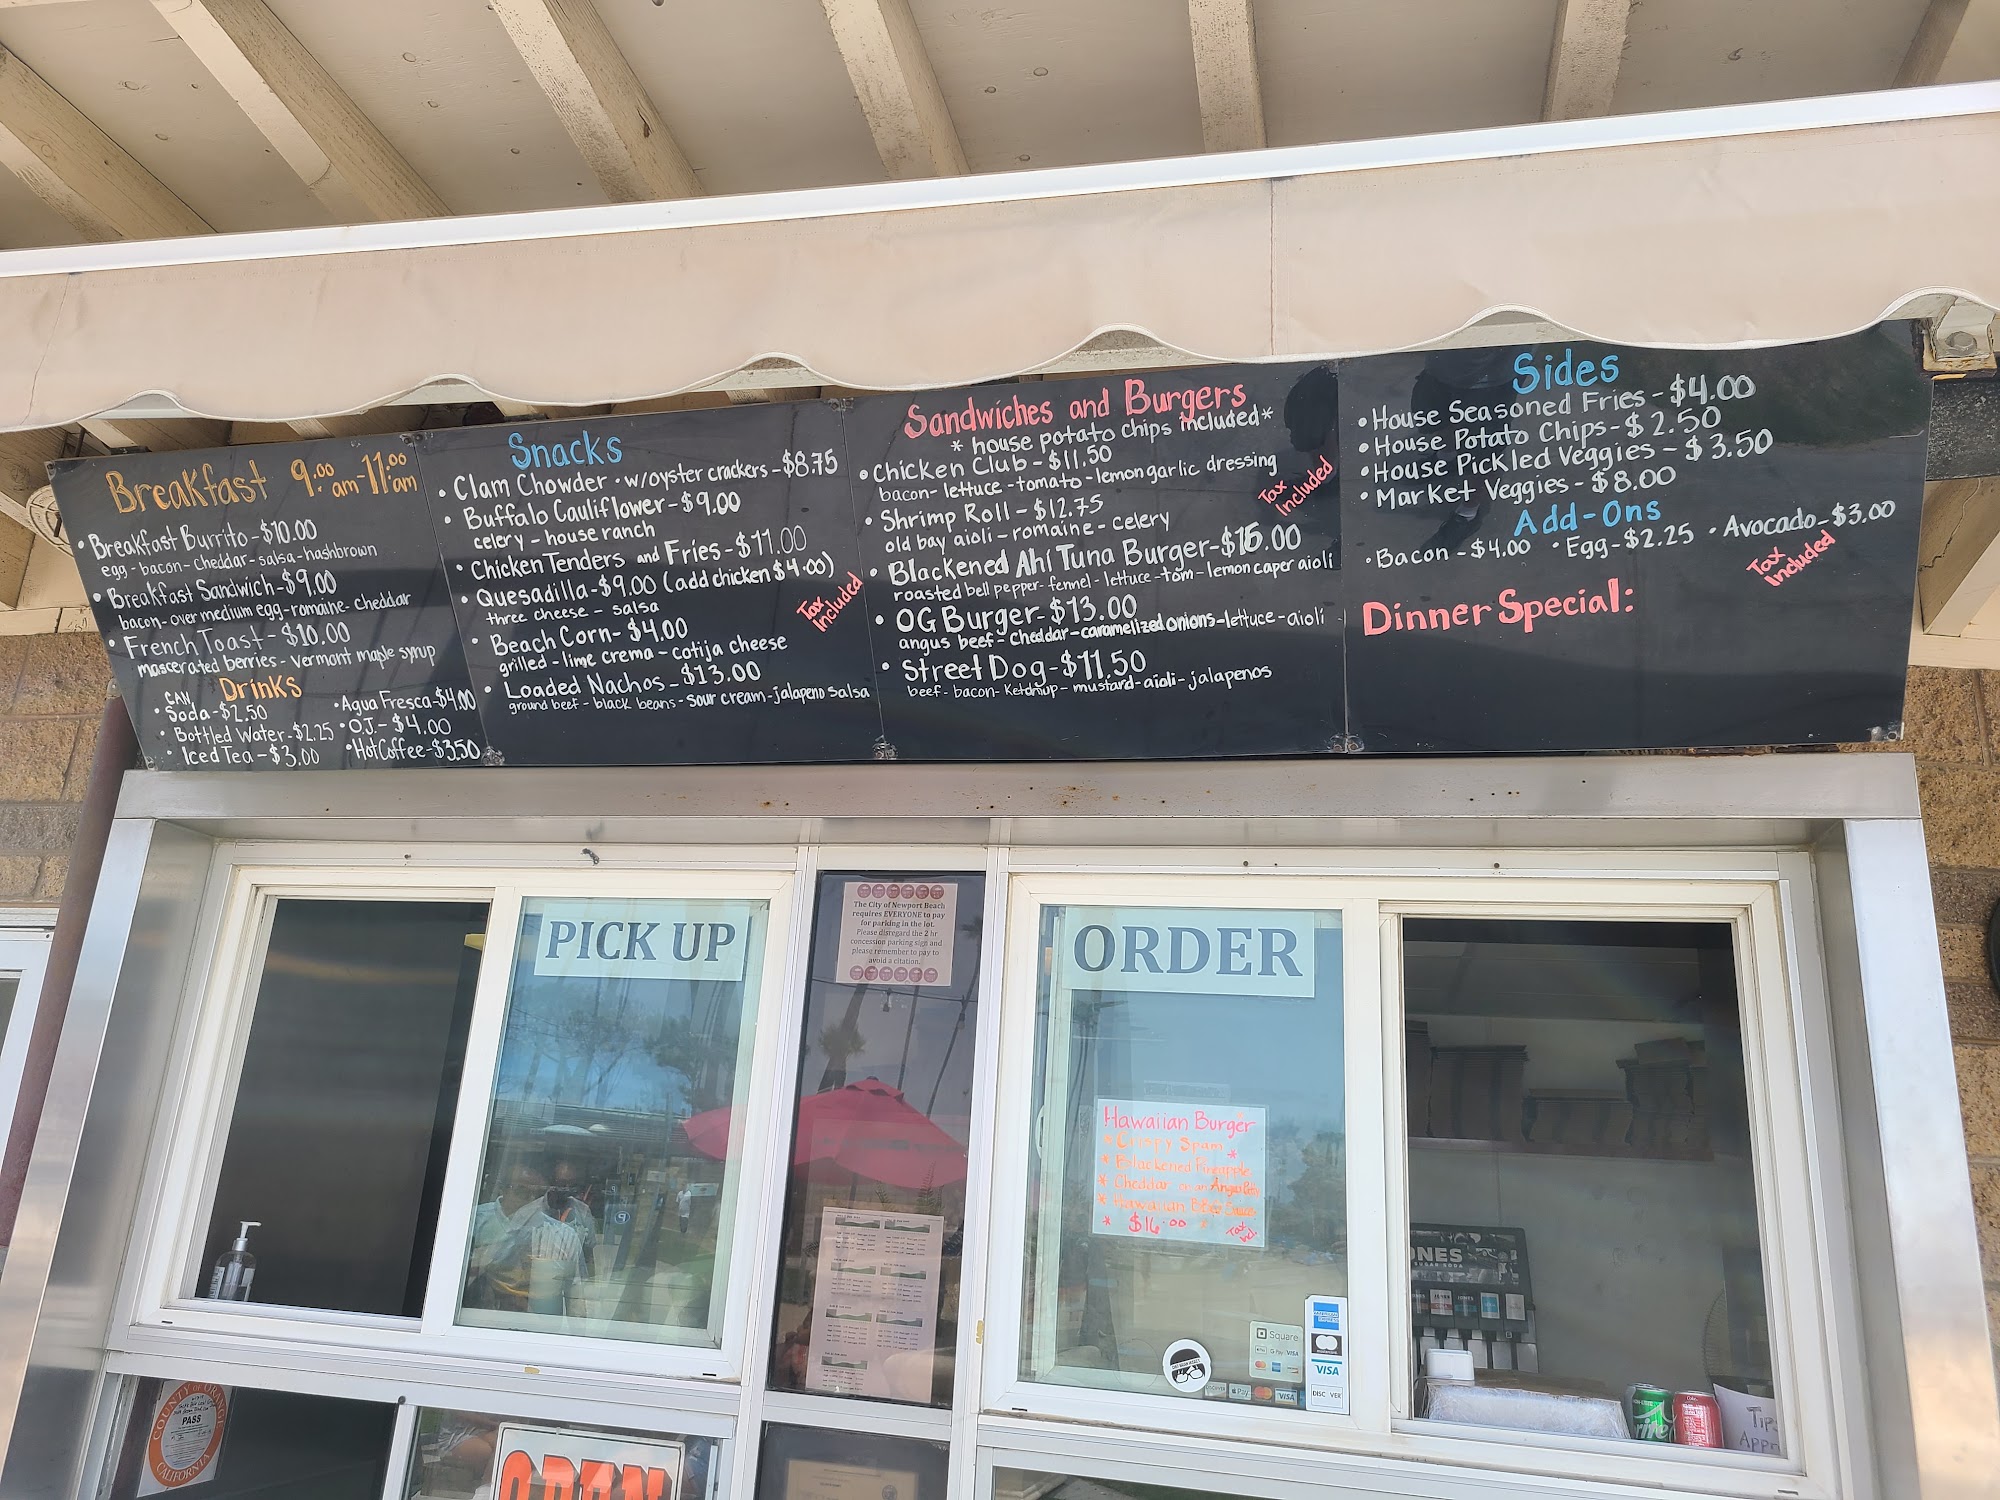 Breakfast 9:00 am-11:00 am
• Breakfast Burrito-$10.00
egg-bacon-cheddar-salsa-hashbrown
• Breakfast Sandwich-$9.00
bacon-over medium egg-romaine-cheddar
• French Toast-$10.00
mascerated berries-vermont maple syrup
Drinks
• CAN Soda-$2.50
• Bottled Water-$2.25
• Iced Tea-$3.00
• Agua Fresca-$4.00
• O.J.-$4.00
• Hot Coffee-$3.50
Snacks
• Clam Chowder • w/oyster crackers-$8.75
• Buffalo Cauliflower-$9.00
celery-house ranch
• Chicken Tenders and Fries-$11.00
• Quesadilla-$9.00 (add chicken $4.00)
three cheese-salsa
• Beach Corn-$4.00
grilled-lime crema-cotija cheese
• Loaded Nachos-$13.00
ground beef-black beans-sour cream-jalapeno salsa
Tax
Included
Sandwiches and Burgers
*house potato chips included*
• Chicken Club-$11.50
bacon-lettuce-tomato-lemon garlic dressing
• Shrimp Roll-$12.75
old bay aioli-romaine-celery
• Blackened Ahi Tuna Burger-$15.00
roasted bell pepper-fennel-lettuce-tom-lemon caper aioli
• OG Burger-$13.00
angus beef-cheddar-caramelized onions-lettuce-aioli
• Street Dog-$11.50
beef-bacon-Ketchup-mustard-aioli-jalapenos
Tax
Included
Sides
• House Seasoned Fries-$4.00
• House Potato Chips-$2.50
• House Pickled Veggies-$3.50
• Market Veggies-$8.00
Add-Ons
• Bacon-$4.00 • Egg-$2.25 • Avocado-$3.00
Tax
Included
Dinner Special:
PICK UP
The City of Newport Beach
requires EVERYONE to pay
for parking in the lot.
Please disregard the 2 hr
concession parking sign and
please remember to pay to
avoid a citation.
ORDER
Hawaiian Burger
* Crispy Spam *
* Blackened Pineapple
* Cheddar on an Angus Patty
* Hawaiian BBQ Sauce
* $16.00
Square
Pay G Pay VISA
AMERICAN EXPRESS
mastercard
VISA
DISCOVER
DISCOVER Pay VISA
JONES
SUGAR SODA
Tips
COUNTY OF ORANGE
PASS
CALIFORNIA
OPEN